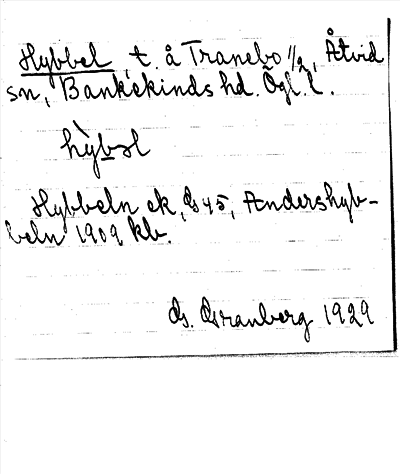 Hybbel, t. å Tranebo 1/2, Åtvid
sn, Bankekinds hd. Ögl. l.
hỳbəl
Hybbeln ek, G 45, Andershyb-
beln 1909 kb.
G. Granberg 1929